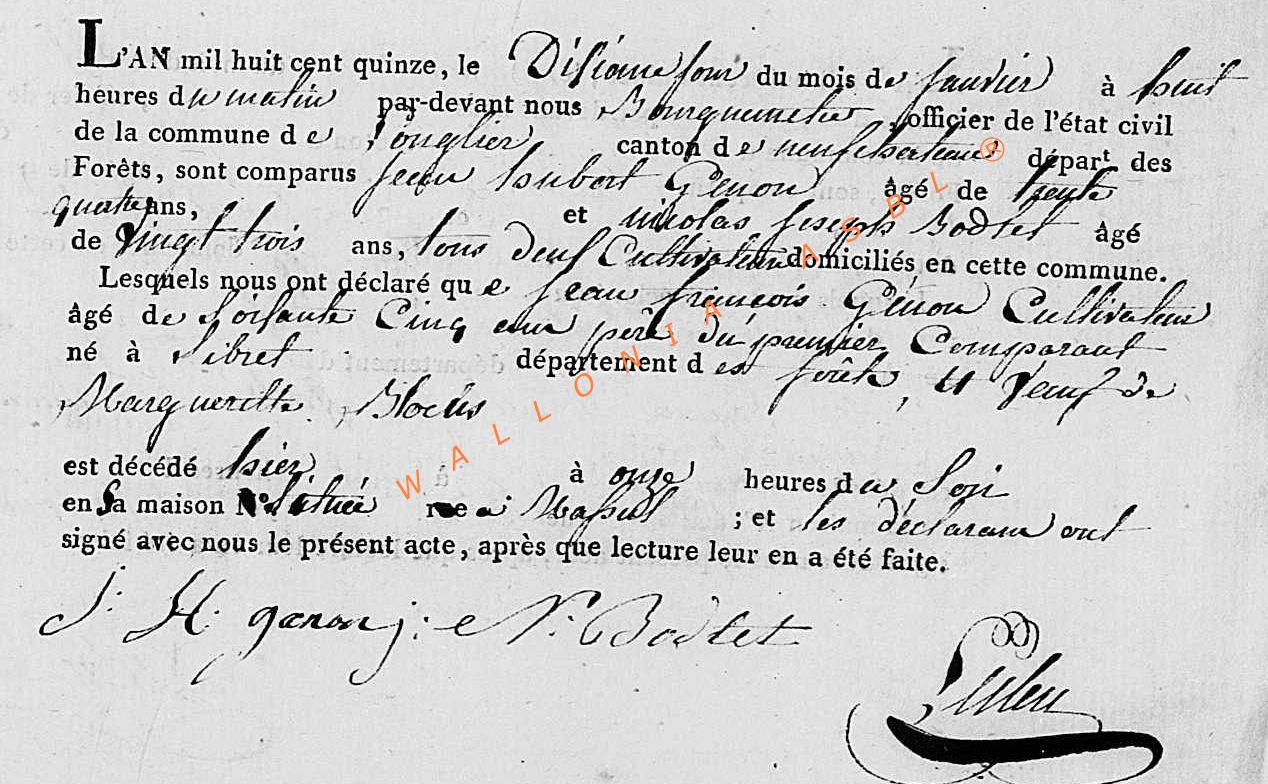 L'AN mil huit cent quinze, le Disième jour du mois de janvier à huit
heures du matin par-devant nous Bourguemetre officier de l'état civil
de la commune de Longlier canton de neufchateau départ des
Forêts, sont comparus jean hubert Génon âgé de trente
quatre ans, et nicolas joseph Bodtet âgé
de vingt trois ans, tous deux Cultivateur domiciliés en cette commune.
Lesquels nous ont déclaré que jean françois Génon Cultivateur
âgé de Soisante Cinq ans père du premier Comparant
né à Sibret département des forêts, et veuf de
Margueritte Blocus
est décédé hier à onze heures du Soir
en Sa maison Située à Massul ; et les déclarans ont
signé avec nous le présent acte, après que lecture leur en a été faite.
J: H: genon j: N: Bodtet
WALLONIA ASBL ®